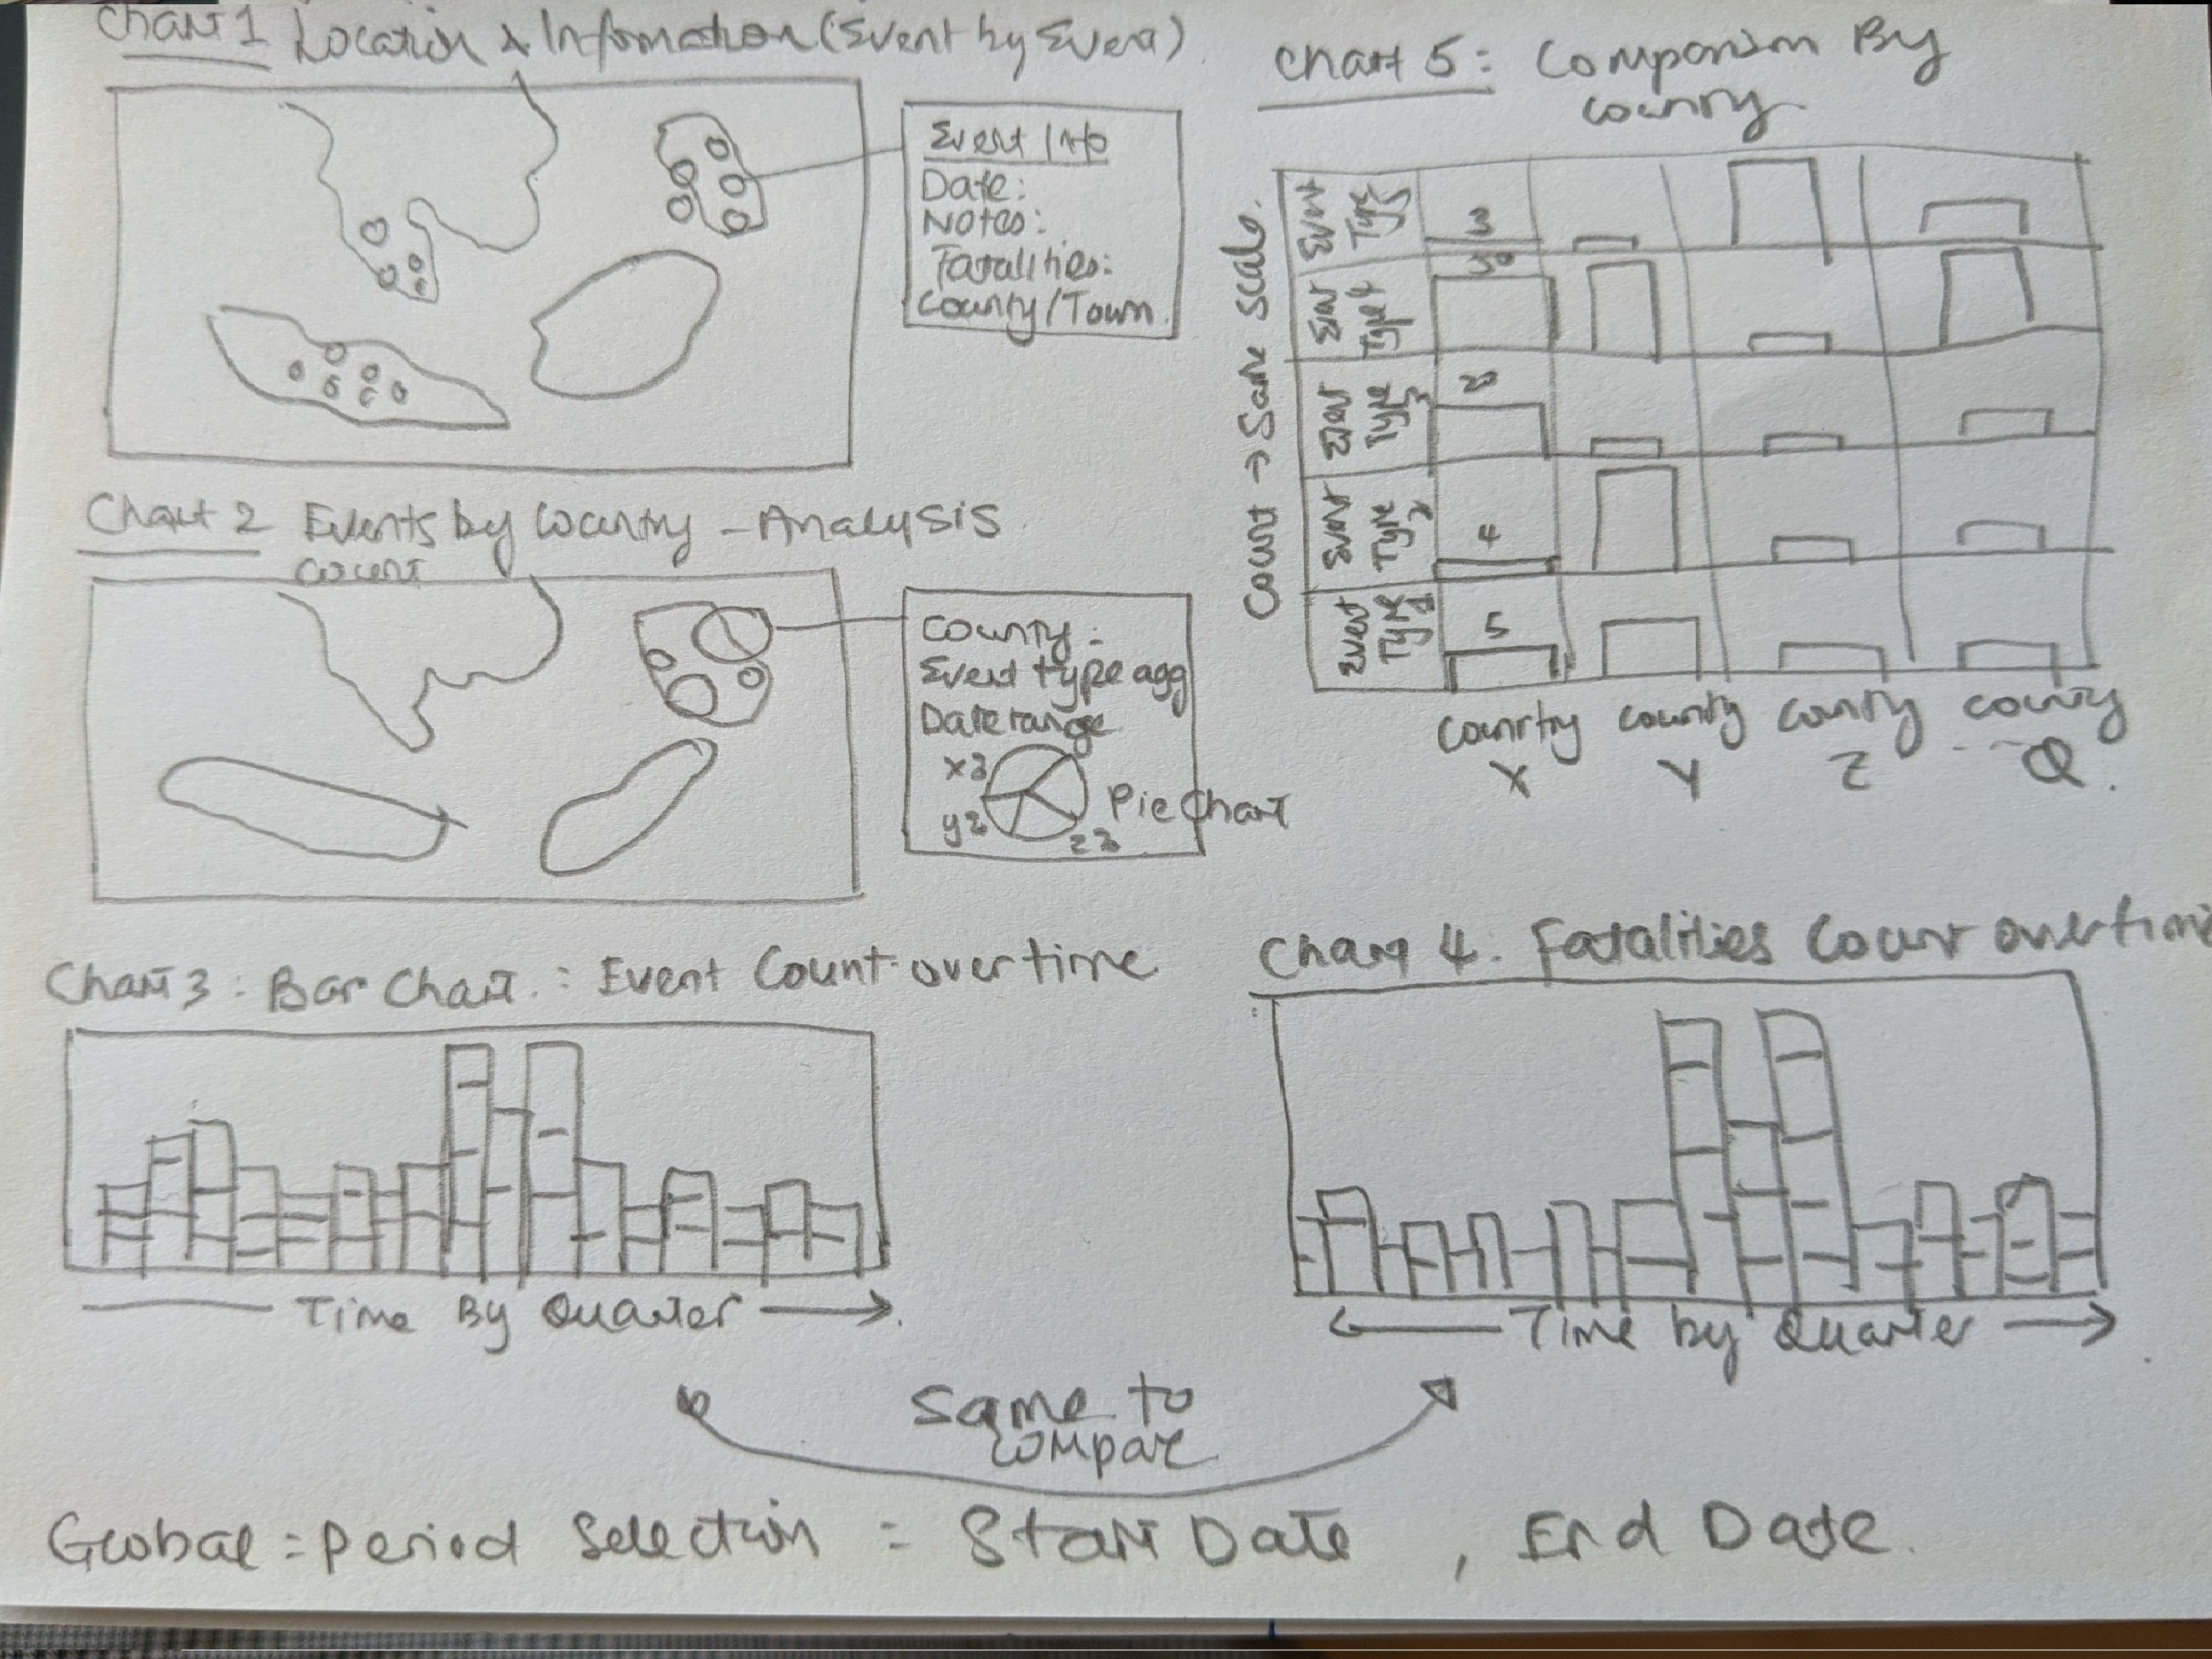 Chart 1 Location & Information (Event by Event)
Event Info
Date:
Notes:
Fatalities:
County/Town
Chart 2 Events by Country - Analysis
count
Country:
Event type agg
Date range
x3
y2
z3
Pie Chart
Chart 3: Bar Chart.: Event Count over time
Time By Quarter
Chart 5: Comparison By
Country
Count → Same scale.
Event
Type
5
3
Event
Type 4
Event
Type
3
Event
Type
2
4
Event
Type
1
5
Country
X
Country
Y
Country
Z
Country
Q.
Chart 4: Fatalities Count over time
Time by Quarter
Same to
compare
Global = Period Selection = Start Date, End Date.